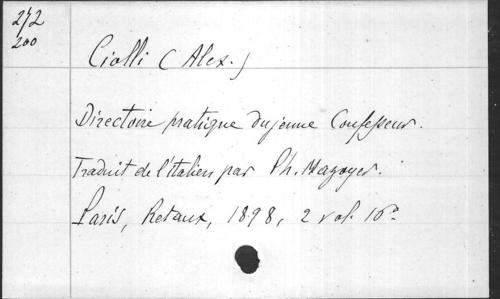 272
200
Ciolli (Alex.)
Directoire pratique du jeune Confesseur.
Traduit de l'italien par Ph. Mazoyer.
Paris, Retaux, 1898, 2 vol. 16º